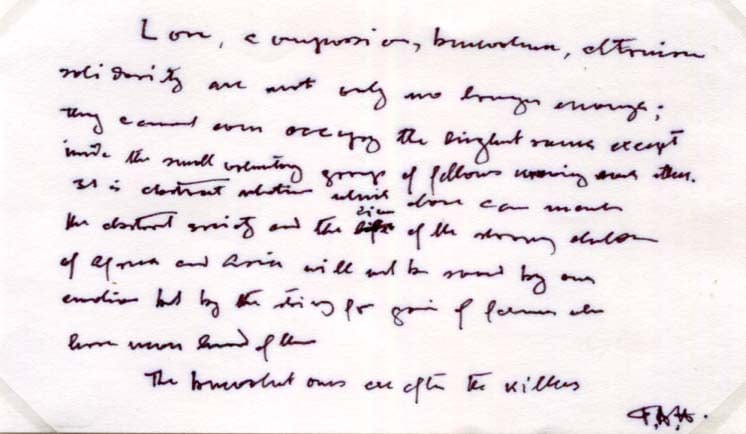 Love, compassion, benevolence, altruism
solidarity are not only no longer enough;
they cannot even occupy the highest ranks except
inside the small voluntary groups of fellows knowing each other.
It is abstract relations which alone can
the abstract society and the lives of the starving children
of Africa and Asia will not be saved by our
emotions but by the striving for gain of persons who
have never heard of them
The benevolent ones are often the killers
F.A.H.